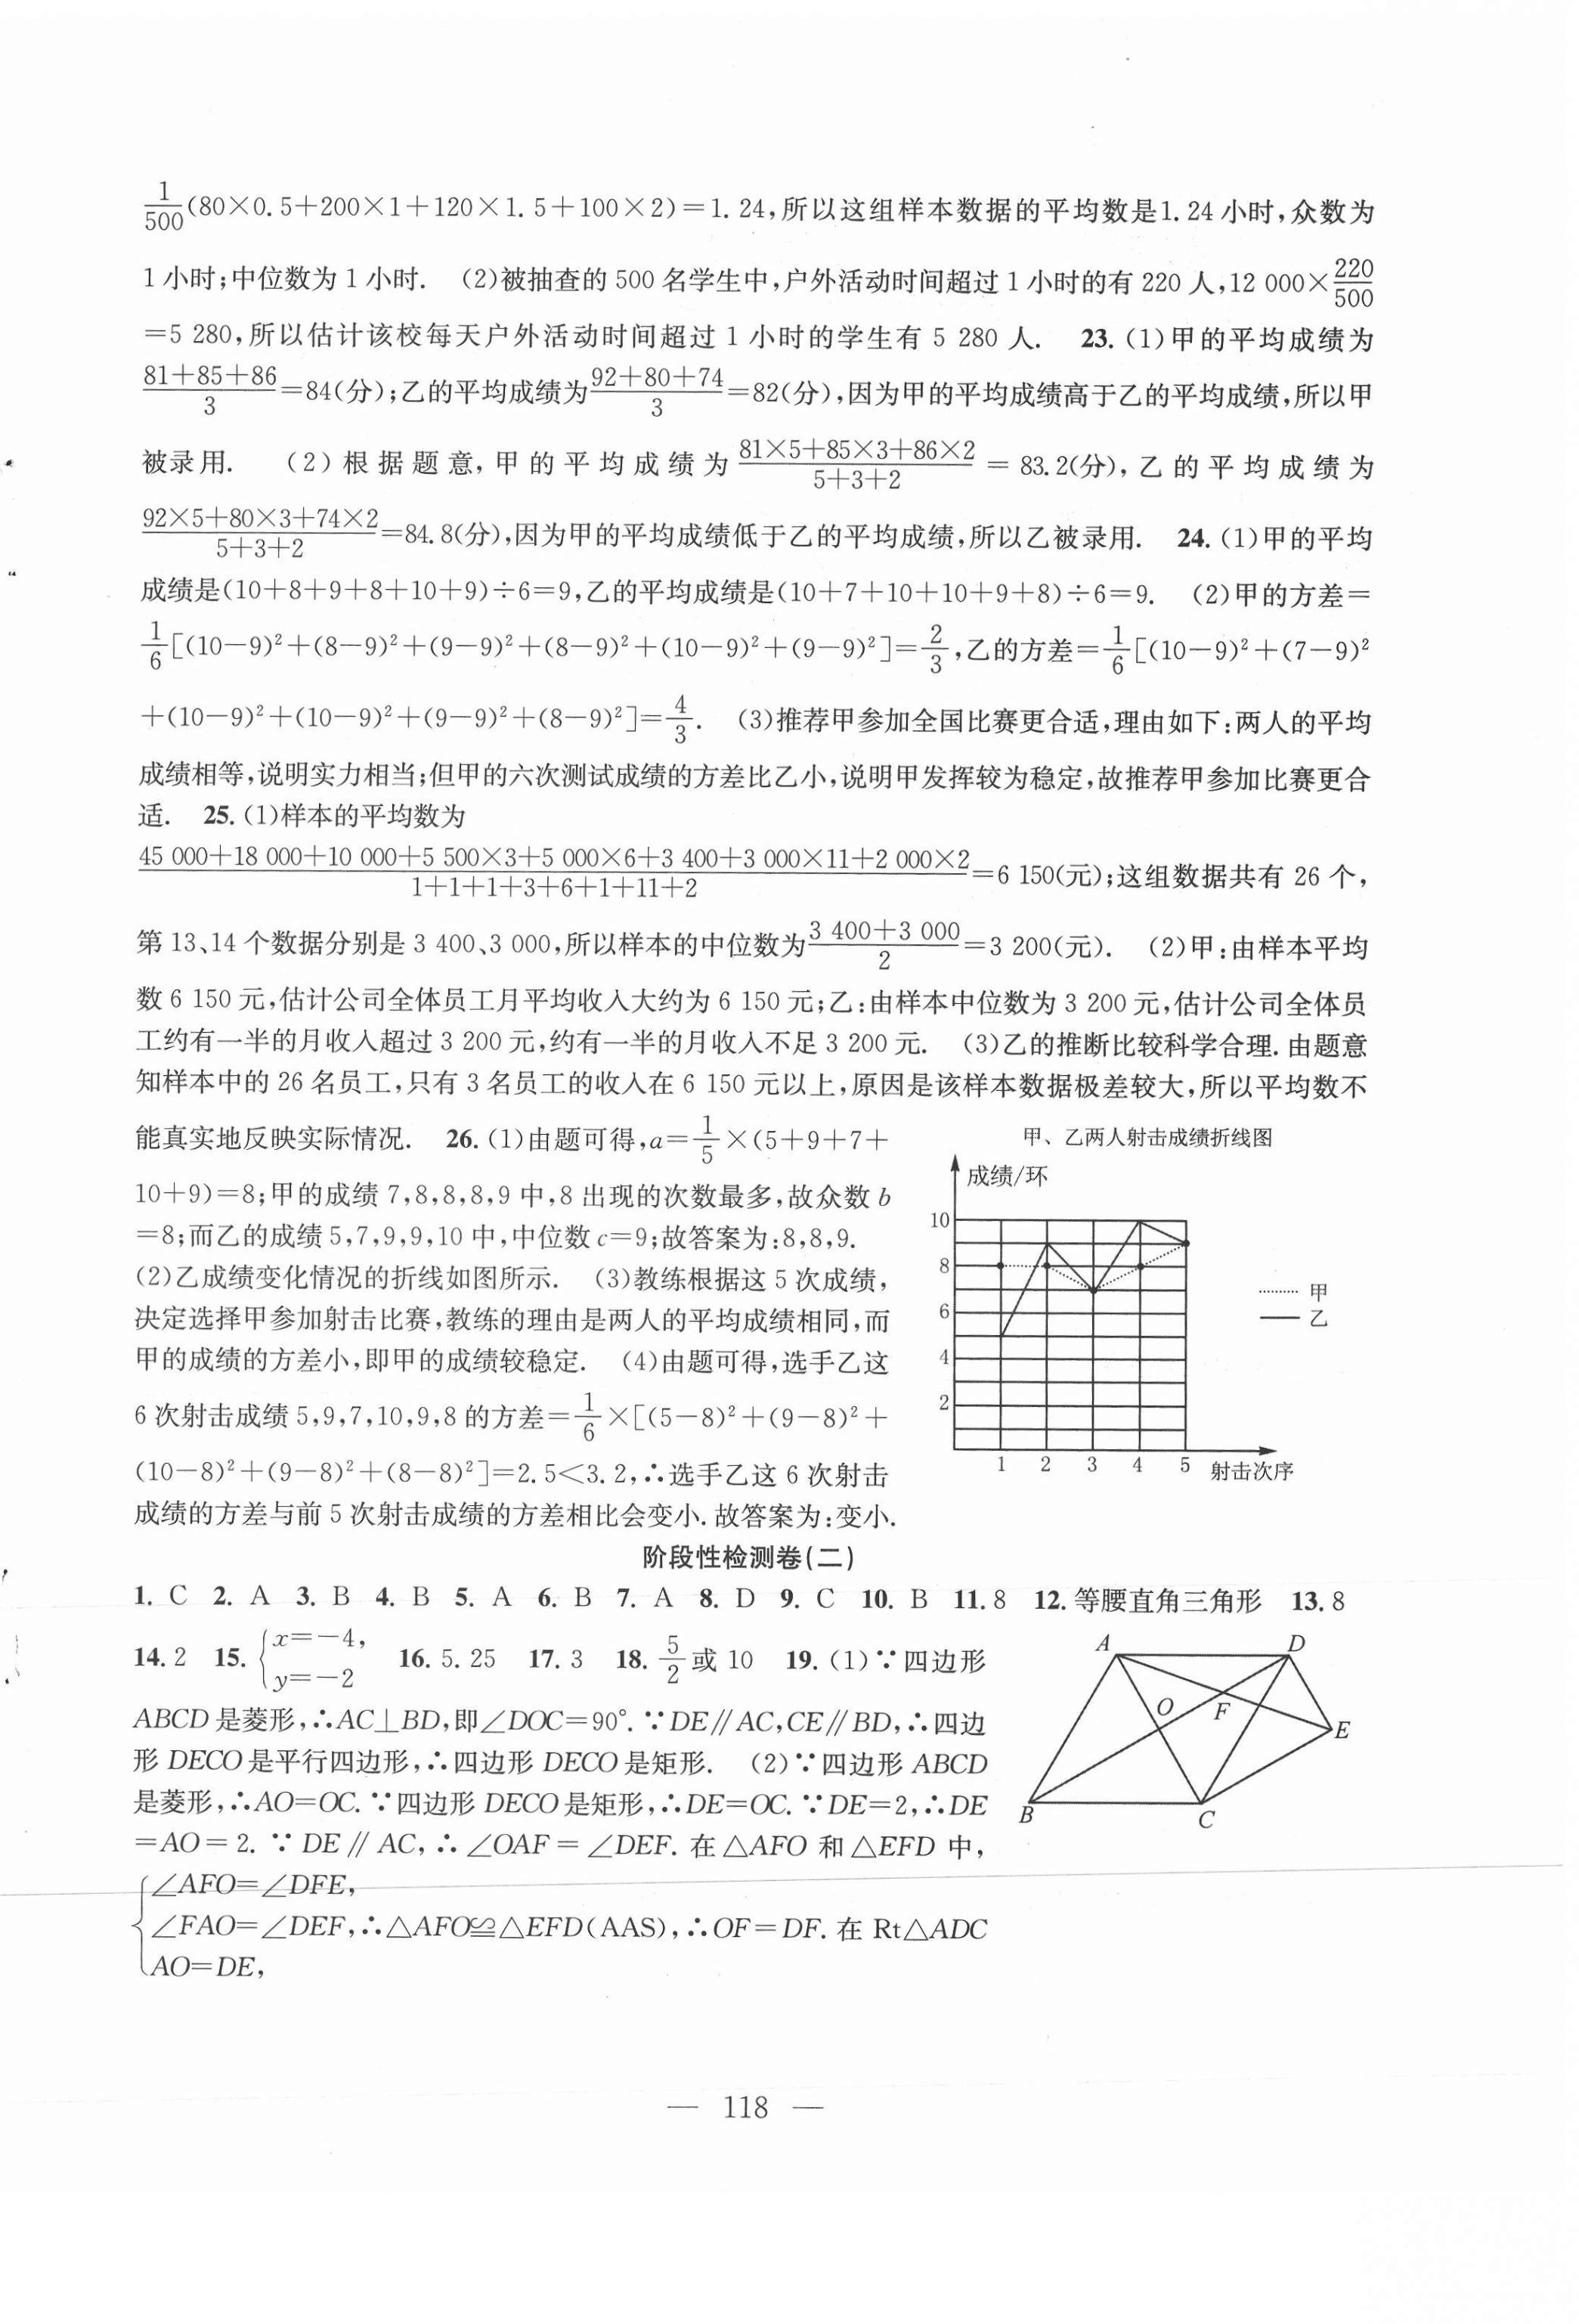 1/500(80×0.5+200×1+120×1.5+100×2)=1.24,所以这组样本数据的平均数是1.24小时,众数为
1小时;中位数为1小时. (2)被抽查的500名学生中,户外活动时间超过1小时的有220人,12 000×220/500
=5 280,所以估计该校每天户外活动时间超过1小时的学生有5 280人. 23.(1)甲的平均成绩为
(81+85+86)/3=84(分);乙的平均成绩为(92+80+74)/3=82(分),因为甲的平均成绩高于乙的平均成绩,所以甲
被录用. (2)根据题意,甲的平均成绩为(81×5+85×3+86×2)/(5+3+2)=83.2(分),乙的平均成绩为
(92×5+80×3+74×2)/(5+3+2)=84.8(分),因为甲的平均成绩低于乙的平均成绩,所以乙被录用. 24.(1)甲的平均
成绩是(10+8+9+8+10+9)÷6=9,乙的平均成绩是(10+7+10+10+9+8)÷6=9. (2)甲的方差=
1/6[(10-9)²+(8-9)²+(9-9)²+(8-9)²+(10-9)²+(9-9)²]=2/3,乙的方差=1/6[(10-9)²+(7-9)²
+(10-9)²+(10-9)²+(9-9)²+(8-9)²]=4/3. (3)推荐甲参加全国比赛更合适,理由如下:两人的平均
成绩相等,说明实力相当;但甲的六次测试成绩的方差比乙小,说明甲发挥较为稳定,故推荐甲参加比赛更合
适. 25.(1)样本的平均数为
(45 000+18 000+10 000+5 500×3+5 000×6+3 400+3 000×11+2 000×2)/(1+1+1+3+6+1+11+2)=6 150(元);这组数据共有26个,
第13、14个数据分别是3 400、3 000,所以样本的中位数为(3 400+3 000)/2=3 200(元). (2)甲:由样本平均
数6 150元,估计公司全体员工月平均收入大约为6 150元;乙:由样本中位数为3 200元,估计公司全体员
工约有一半的月收入超过3 200元,约有一半的月收入不足3 200元. (3)乙的推断比较科学合理.由题意
知样本中的26名员工,只有3名员工的收入在6 150元以上,原因是该样本数据极差较大,所以平均数不
能真实地反映实际情况. 26.(1)由题可得,a=1/5×(5+9+7+
10+9)=8;甲的成绩7,8,8,8,9中,8出现的次数最多,故众数b
=8;而乙的成绩5,7,9,9,10中,中位数c=9;故答案为:8,8,9.
(2)乙成绩变化情况的折线如图所示. (3)教练根据这5次成绩,
决定选择甲参加射击比赛,教练的理由是两人的平均成绩相同,而
甲的成绩的方差小,即甲的成绩较稳定. (4)由题可得,选手乙这
6次射击成绩5,9,7,10,9,8的方差=1/6×[(5-8)²+(9-8)²+
(10-8)²+(9-8)²+(8-8)²]=2.5<3.2,∴选手乙这6次射击
成绩的方差与前5次射击成绩的方差相比会变小.故答案为:变小.
甲、乙两人射击成绩折线图
成绩/环
10
8
6
4
2
1 2 3 4 5 射击次序
甲
乙
阶段性检测卷(二)
1. C 2. A 3. B 4. B 5. A 6. B 7. A 8. D 9. C 10. B 11. 8 12. 等腰直角三角形 13. 8
14. 2 15. {x=-4, y=-2 16. 5.25 17. 3 18. 5/2或10 19.(1)∵四边形
ABCD是菱形,∴AC⊥BD,即∠DOC=90°.∵DE∥AC,CE∥BD,∴四边
形DECO是平行四边形,∴四边形DECO是矩形. (2)∵四边形ABCD
是菱形,∴AO=OC.∵四边形DECO是矩形,∴DE=OC.∵DE=2,∴DE
=AO=2.∵DE∥AC,∴∠OAF=∠DEF.在△AFO和△EFD中,
{∠AFO=∠DFE,
∠FAO=∠DEF,∴△AFO≌△EFD(AAS),∴OF=DF.在Rt△ADC
AO=DE,
A
D
O
F
E
B
C
— 118 —